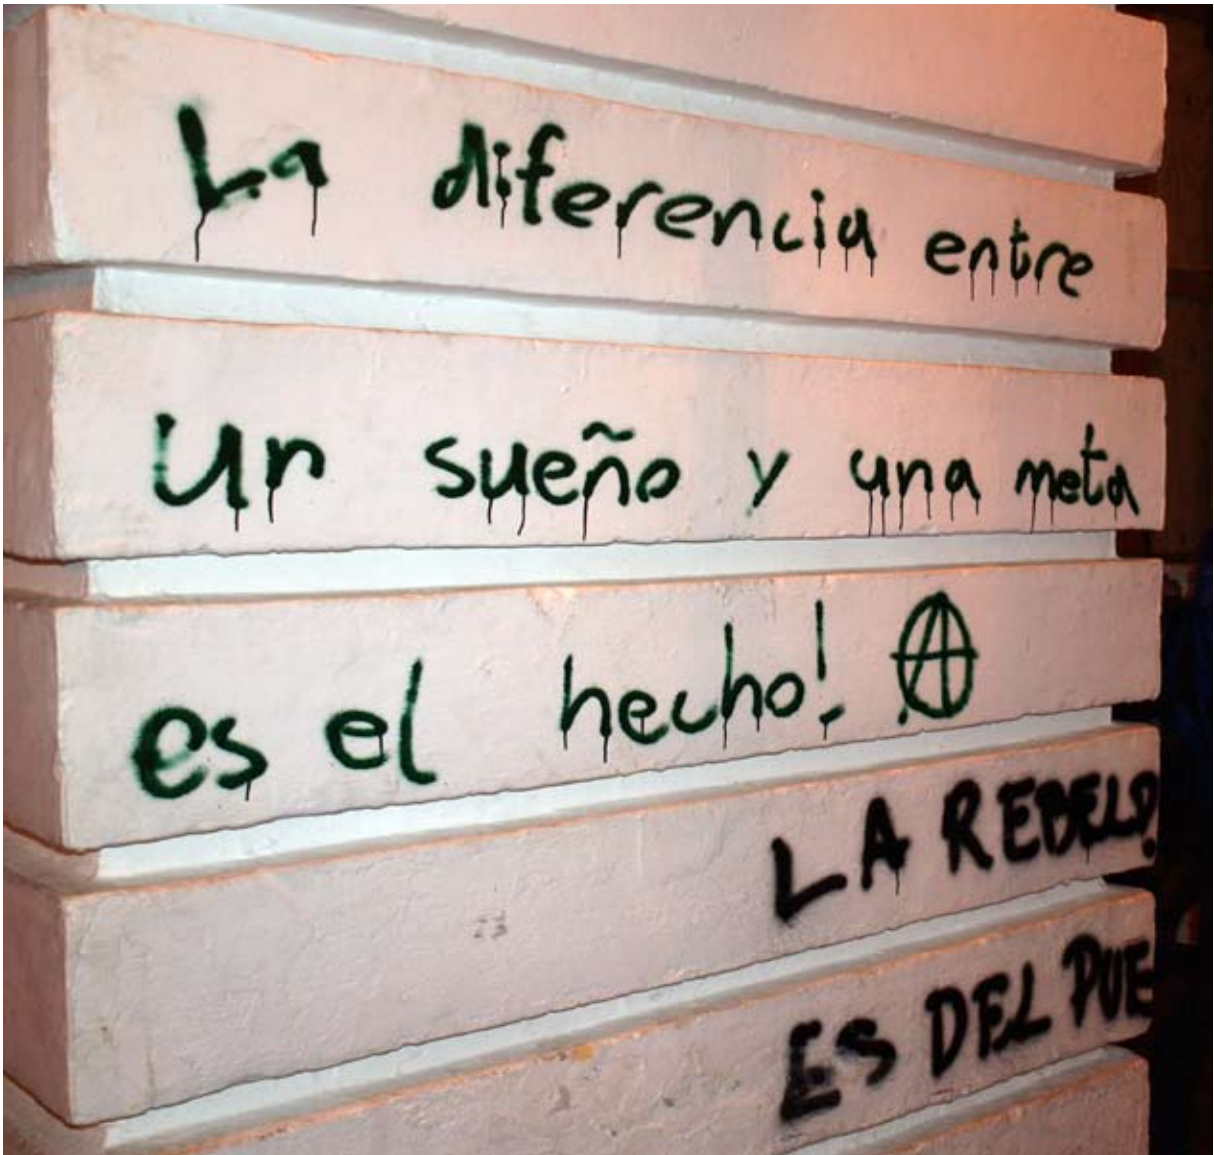 La diferencia entre
un sueño y una meta
es el hecho! Ⓐ
LA REBELD
ES DEL PUE